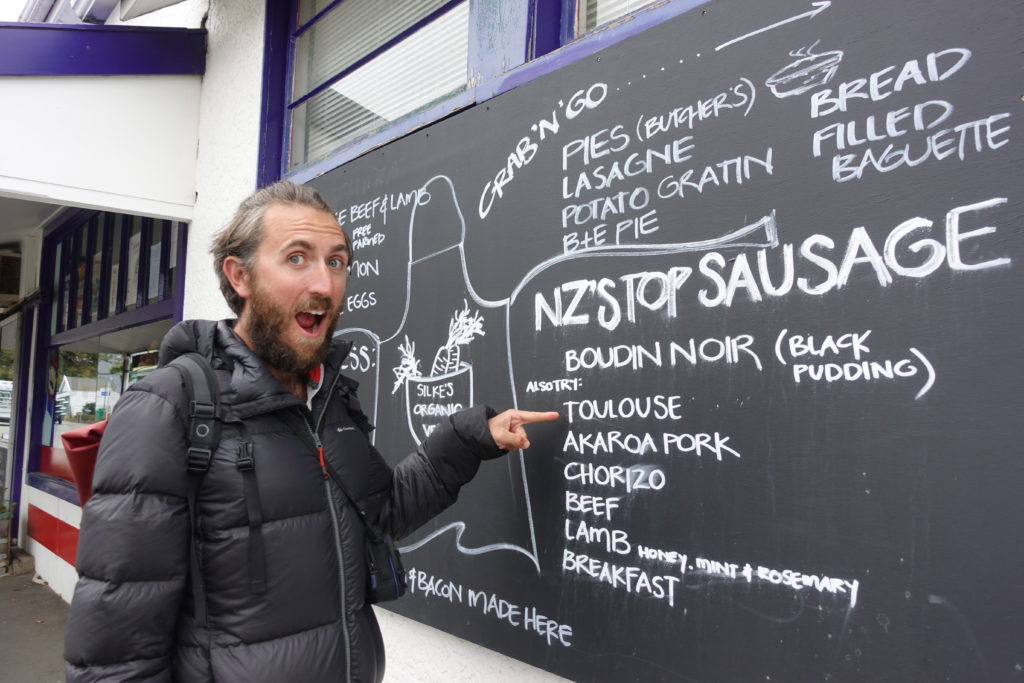 GRAB 'N' GO.......
PIES (BUTCHER'S)
LASAGNE
POTATO GRATIN
B+E PIE
BREAD
FILLED
BAGUETTE
BEEF & LAMB
FREE
FARMED
EGGS
SILKE'S
ORGANIC
NZ'S TOP SAUSAGE
BOUDIN NOIR (BLACK
PUDDING)
ALSO TRY:
TOULOUSE
AKAROA PORK
CHORIZO
BEEF
LAMB HONEY, MINT & ROSEMARY
BREAKFAST
& BACON MADE HERE